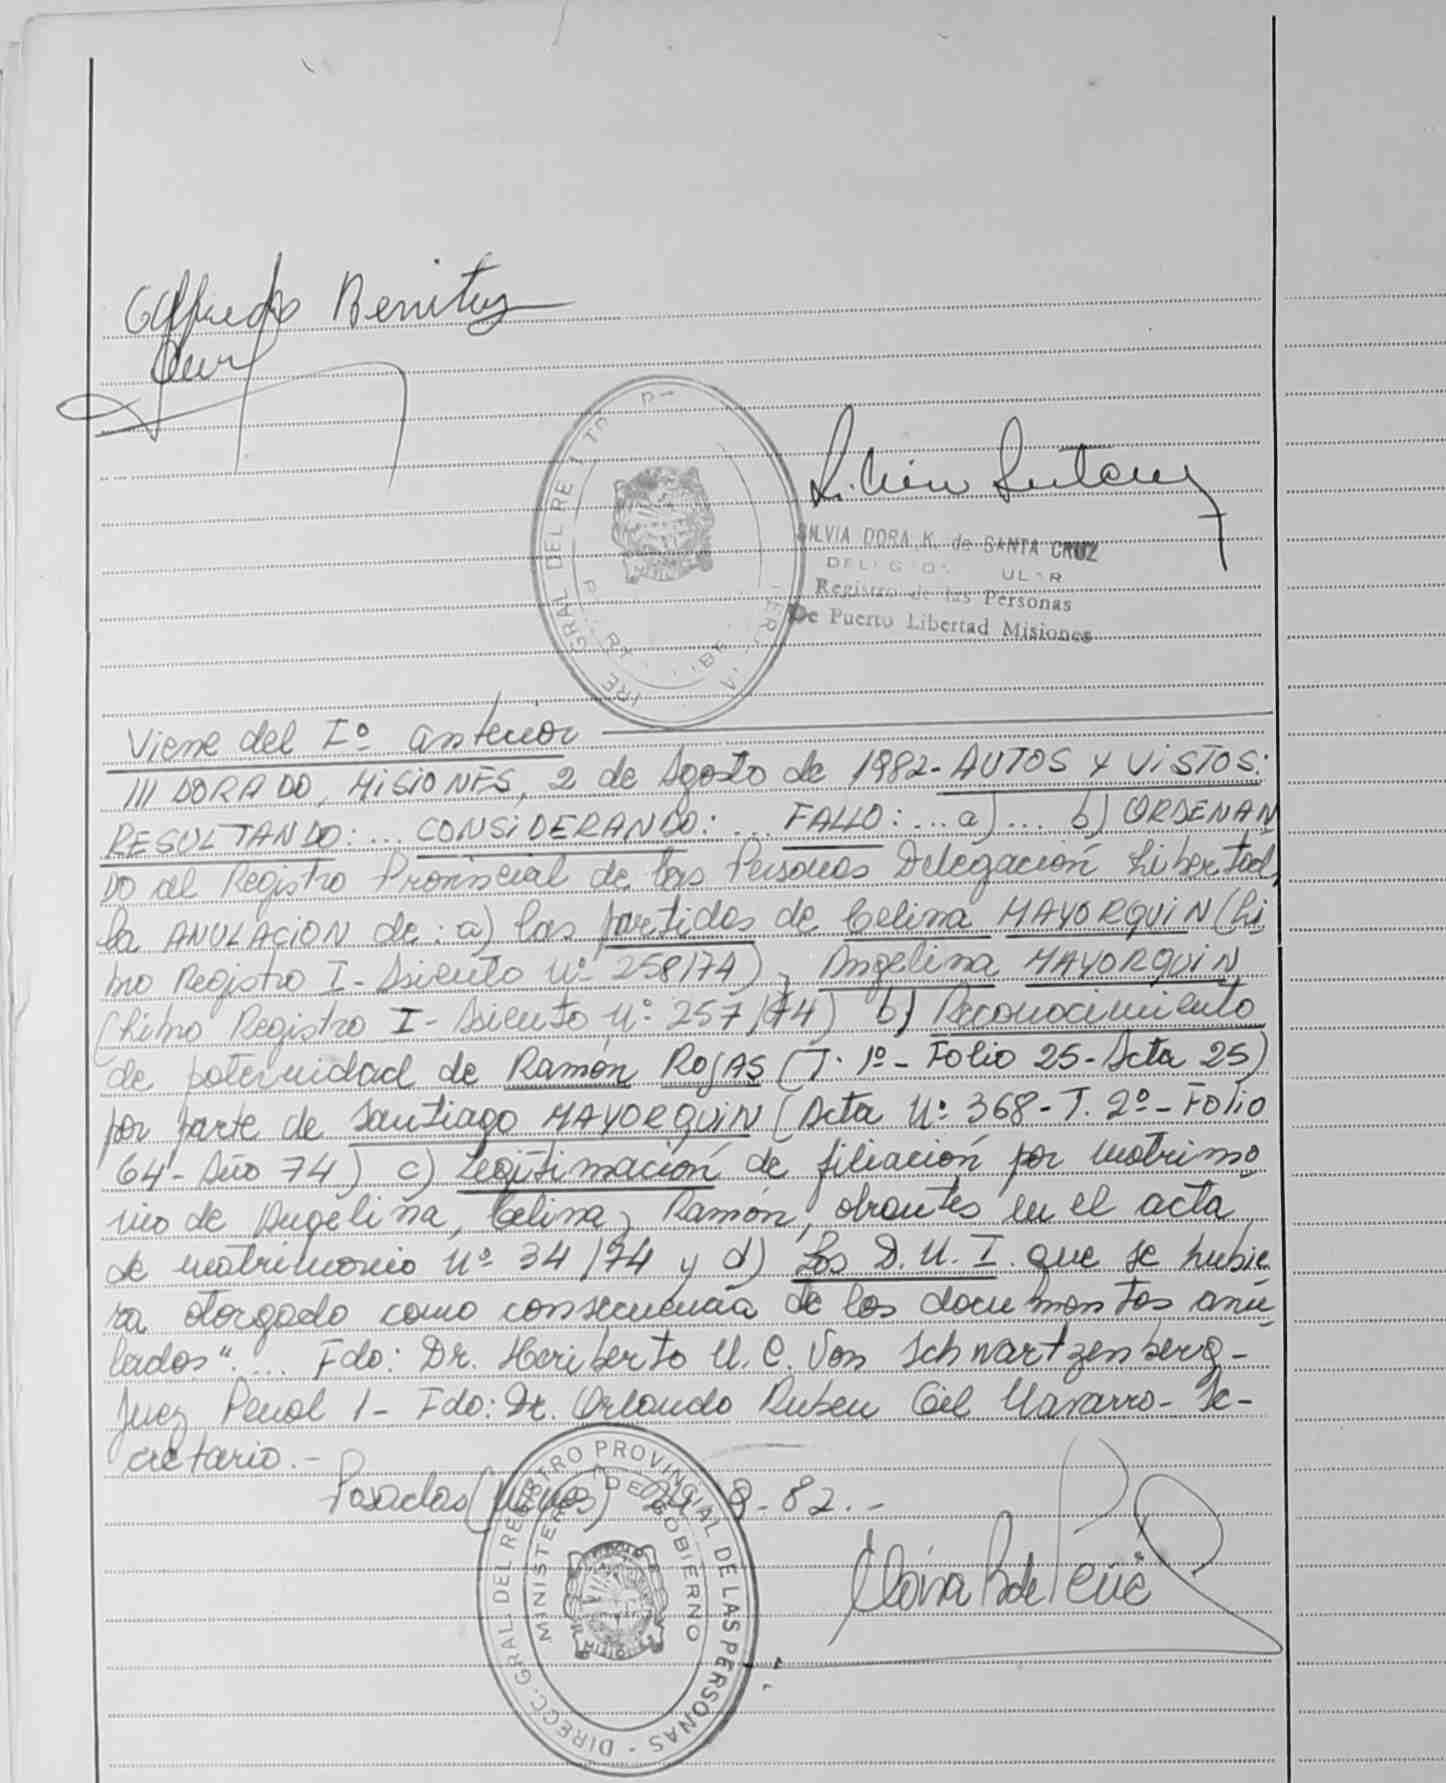 Alfredo Benitez
SILVIA DORA K. de SANTA CRUZ
Registro de las Personas
De Puerto Libertad Misiones
Viene del Iº anterior
III DORADO, MISIONES, 2 de Agosto de 1982- AUTOS Y VISTOS:
RESULTANDO: ... CONSIDERANDO: ... FALLO: ... a) ... b) ORDENAN
DO al Registro Provincial de las Personas Delegación Libertad,
la ANULACION de: a) las partidas de Celina MAYORQUIN (Li
bro Registro I- Asiento Nº 258/74), Angelina MAYORQUIN
(Libro Registro I- Asiento Nº 257/74) b) Reconocimiento
de paternidad de Ramón ROJAS (T. 1º- Folio 25- Acta 25)
por parte de Santiago MAYORQUIN (Acta Nº 368- T. 2º- Folio
64- Año 74) c) Legitimación de filiación por matrimo
nio de Angelina, Celina y Ramón, obrantes en el acta
de matrimonio Nº 34/74 y d) Los D.N.I. que se hubie
ra otorgado como consecuencia de los documentos anu
lados" .... Fdo: Dr. Heriberto N. C. Von Schwartzenberg-
Juez Penal 1- Fdo: Dr. Orlando Ruben Gil Navarro- Se-
cretario.-
Posadas (Mnes) 8-82.-
DIRECC. GRAL. DEL REGISTRO PROVINCIAL DE LAS PERSONAS
MINISTERIO DE GOBIERNO